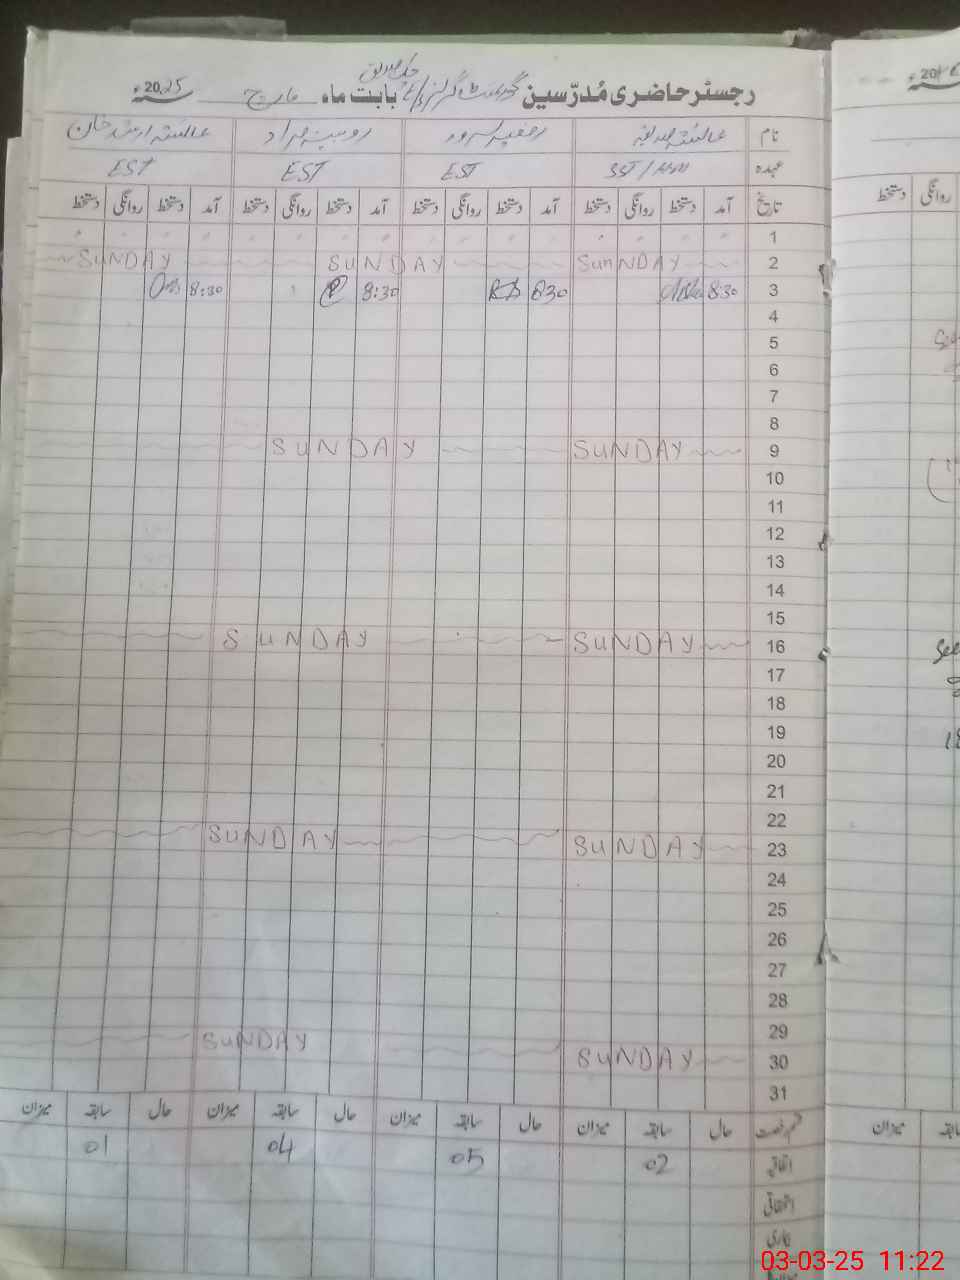 رجسٹر حاضری مُدرّسین گورنمنٹ گرلز بابت ماہ مارچ سنہ 2025ء
نام عائشہ صدیقہ رضیہ سرور روبینہ مراد عائشہ ارشد خان
عہدہ SST/HM EST EST EST
تاریخ آمد دستخط روانگی دستخط آمد دستخط روانگی دستخط آمد دستخط روانگی دستخط آمد دستخط روانگی دستخط
1
SUNDAY SUNDAY SUNDAY 2
8:30 8:30 830 8:30 3
4
5
6
7
8
SUNDAY SUNDAY 9
10
11
12
13
14
15
SUNDAY SUNDAY 16
17
18
19
20
21
22
SUNDAY SUNDAY 23
24
25
26
27
28
29
SUNDAY SUNDAY 30
31
حال سابقہ میزان حال سابقہ میزان حال سابقہ میزان حال سابقہ میزان
اتفاقیہ 02 05 04 01
بیماری
روانگی دستخط
میزان
03-03-25 11:22